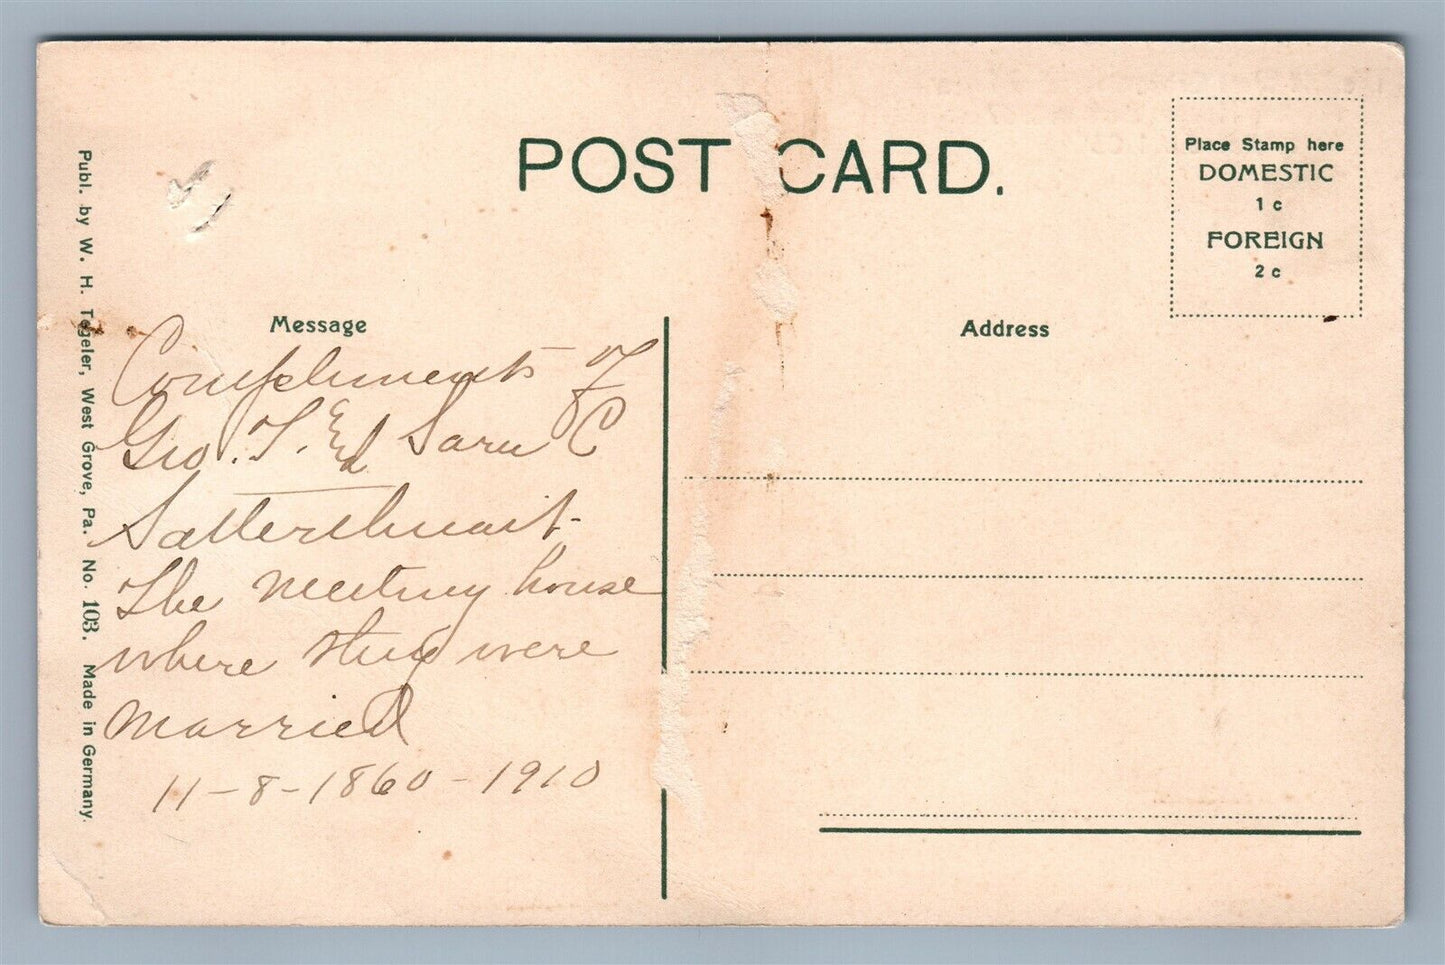 POST CARD.
Place Stamp here
DOMESTIC
1 c
FOREIGN
2 c
Message
Address
Compliments of
Geo. T. Ed Saru C
Satterthwait-
The meeting house
where they were
married
11-8-1860-1910
Publ. by W. H. Tegeler, West Grove, Pa. No. 103. Made in Germany.